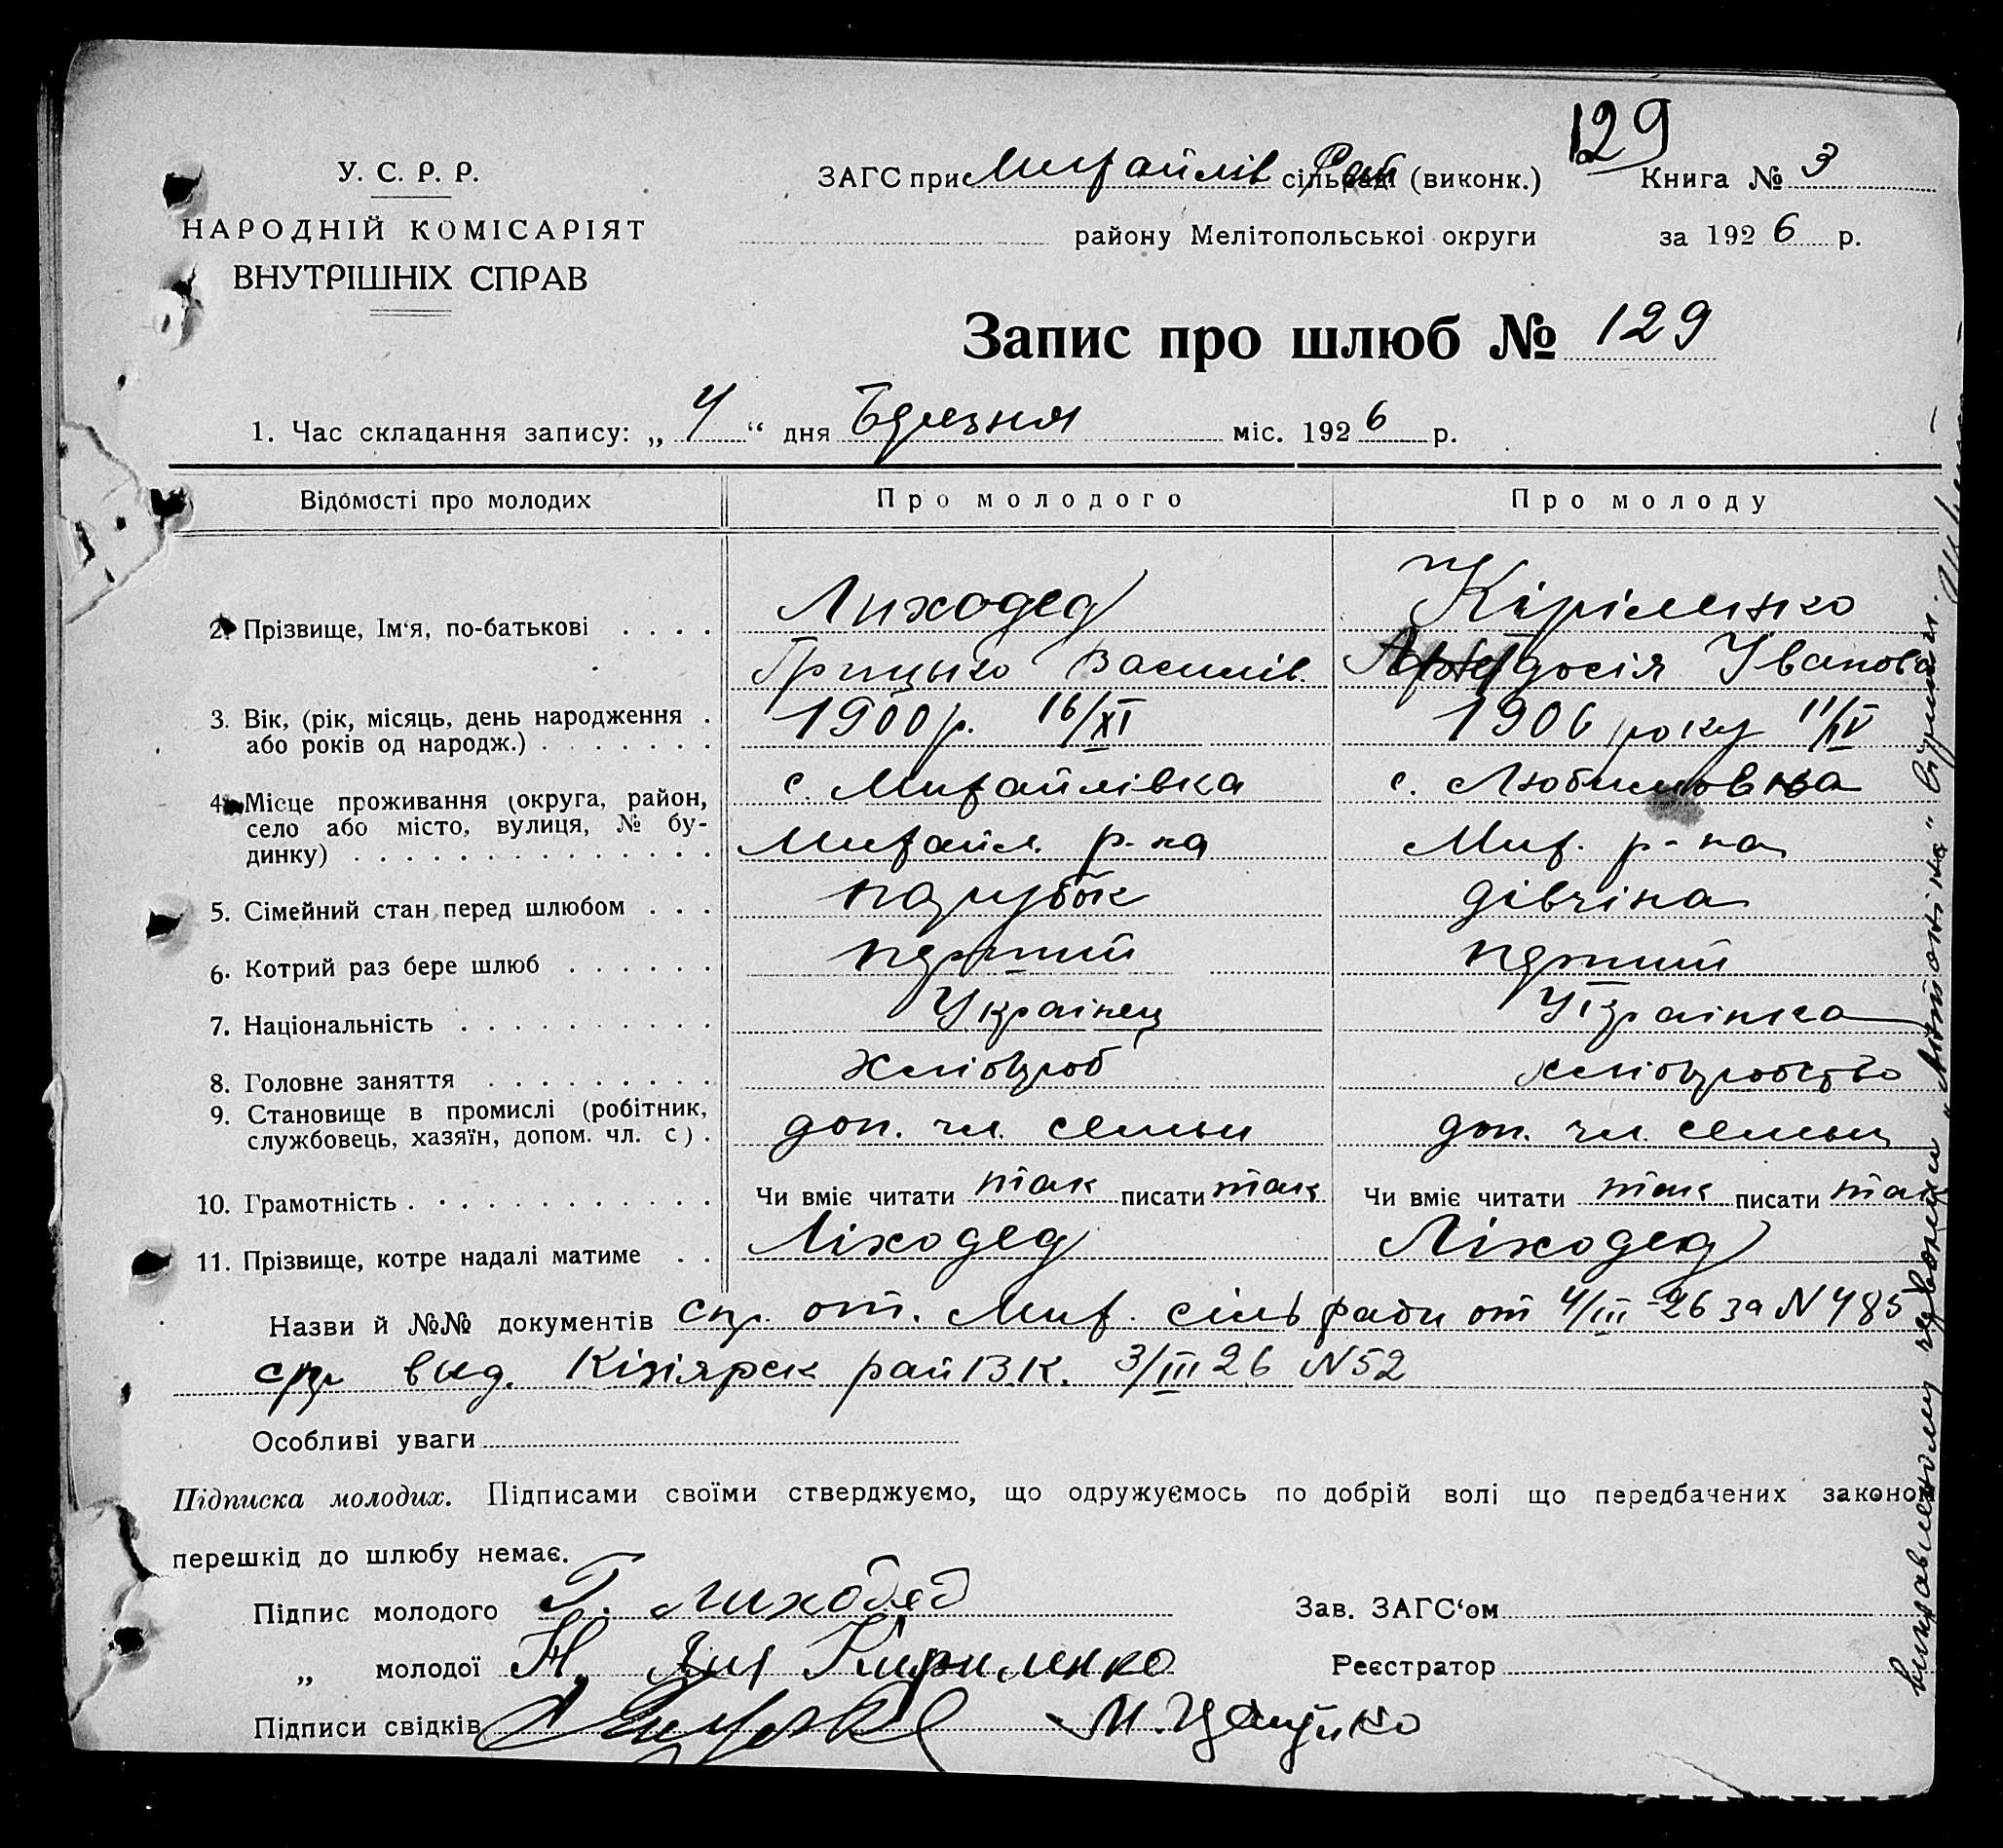 129
У. С. Р. Р.
НАРОДНІЙ КОМІСАРІЯТ
ВНУТРІШНІХ СПРАВ
ЗАГС при Михайлів сільраді (виконк.) Книга № 3
району Мелітопольської округи за 1926 р.
Запис про шлюб № 129
1. Час складання запису: „ 4 “ дня Березня міс. 1926 р.
Відомості про молодих Про молодого Про молоду
2. Прізвище, Ім‘я, по-батькові . . . . Лиходед Кіріленко
Грицько Василів. досія Іванова
3. Вік, (рік, місяць, день народження . 1900 р. 16/XI 1906 року 11/IV
або років од народж.) . . . . . . .
4. Місце проживання (округа, район, с. Михайлівка с. Любимовка
село або місто, вулиця, № бу-
динку) . . . . . . . . . . . . . . Михайл. р-на Мих. р-на
5. Сімейний стан перед шлюбом . . . парубок дівчіна
6. Котрий раз бере шлюб . . . . . . перший перший
7. Національність . . . . . . . . . . Українец Українка
8. Головне заняття . . . . . . . . . хлібороб хліборобство
9. Становище в промислі (робітник,
службовець, хазяїн, допом. чл. с) . доп. чл. семьи доп. чл. семьи
10. Грамотність . . . . . . . . . . . . Чи вміє читати так писати так Чи вміє читати так писати так
11. Прізвище, котре надалі матиме . . Ліходед Ліходед
Назви й №№ документів спр. от. Мих. сільради от 4/III-26 за N 485
спр выд. Кізіярск рай В.К. 3/III 26 N 52
Особливі уваги
Підписка молодих. Підписами своїми стверджуємо, що одружуємось по добрій волі що передбачених законом
перешкід до шлюбу немає.
Підпис молодого Г. Лиходед Зав. ЗАГС‘ом
„ молодої Кириленко Реєстратор
Підписи свідків М.
виправленому червоним вірити.